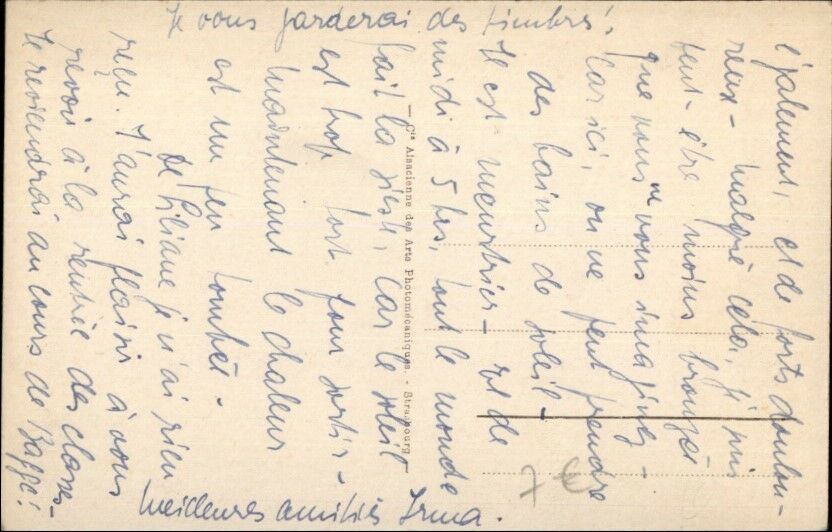 également, et de forts doulou-
reux - malgré cela, je suis
peut-être moins bronzée
que vous vous imaginez -
Car ici, on ne peut prendre
des bains de soleil -
Il est meurtrier - et de
midi à 5 hrs, tout le monde
fait la siest, car le soleil
est trop fort pour sortir -
Maintenant le chaleur
est un peu tombée -
De Liliane je n'ai rien
reçu. J'aurai plaisir à vous
revoir à la rentrée des classes -
Je reviendrai au cours de
Je vous garderai des timbres!
Meilleures amitiés Irma.
— Cie Alsacienne des Arts Photomécaniques. - Strasbourg —
7 €